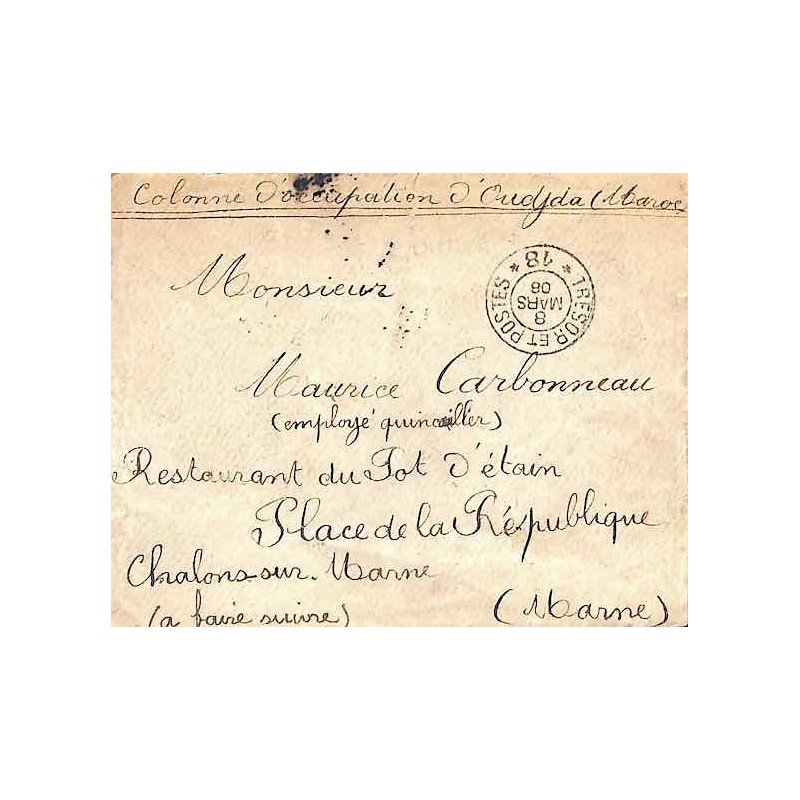 Colonne d'occupation d'Oudjda (Maroc
Monsieur
TRESOR ET POSTES * 48 *
8
MARS
08
Maurice Carbonneau
(employé quincailler)
Restaurant du Pot d'étain
Place de la République
Chalons-sur-Marne
(a faire suivre)
(Marne)